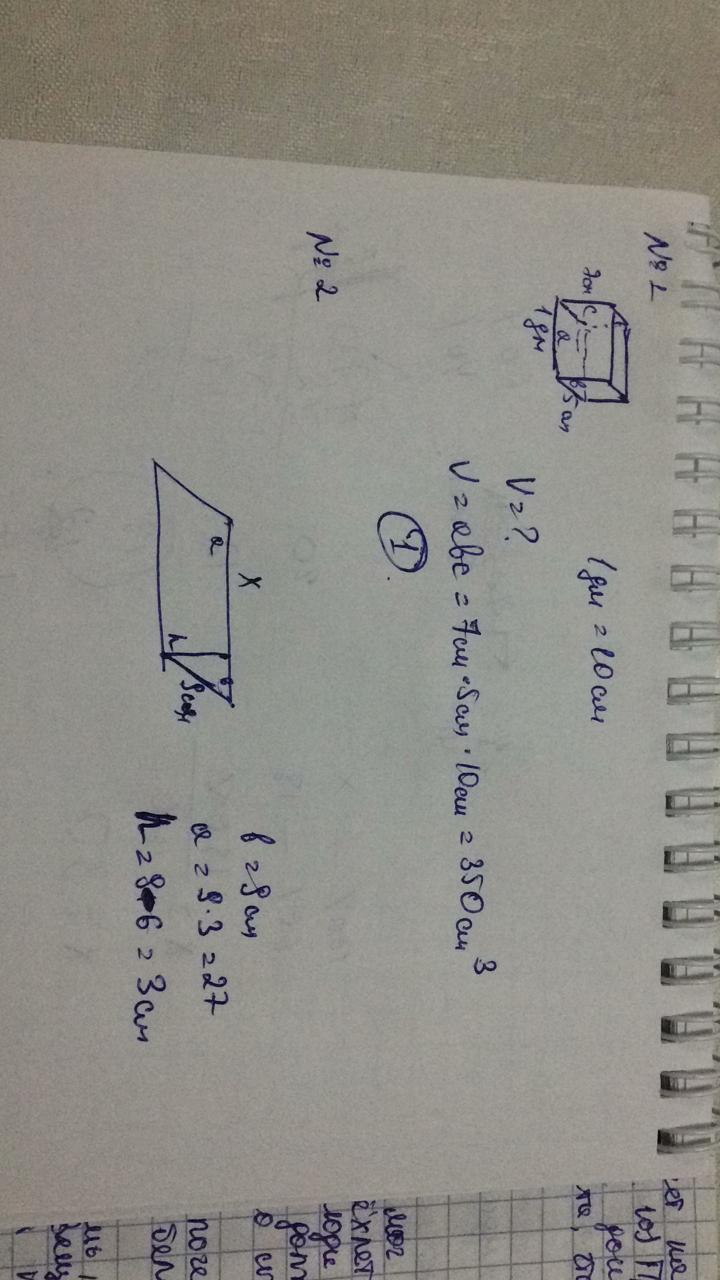 № 1
7см
c
a
b
5см
1дм
1дм = 10см
V = ?
V = abc = 7см · 5см · 10см = 350см³
1
№ 2
x
a
b
h
9см
b = 9см
a = 9 · 3 = 27
h = 9 - 6 = 3см